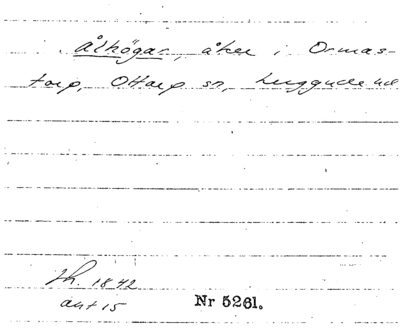 Ålhögar, åker i Ormas-
torp, Ottarp sn, Luggude hd
Lh. 1842
akt 15
Nr 5261.